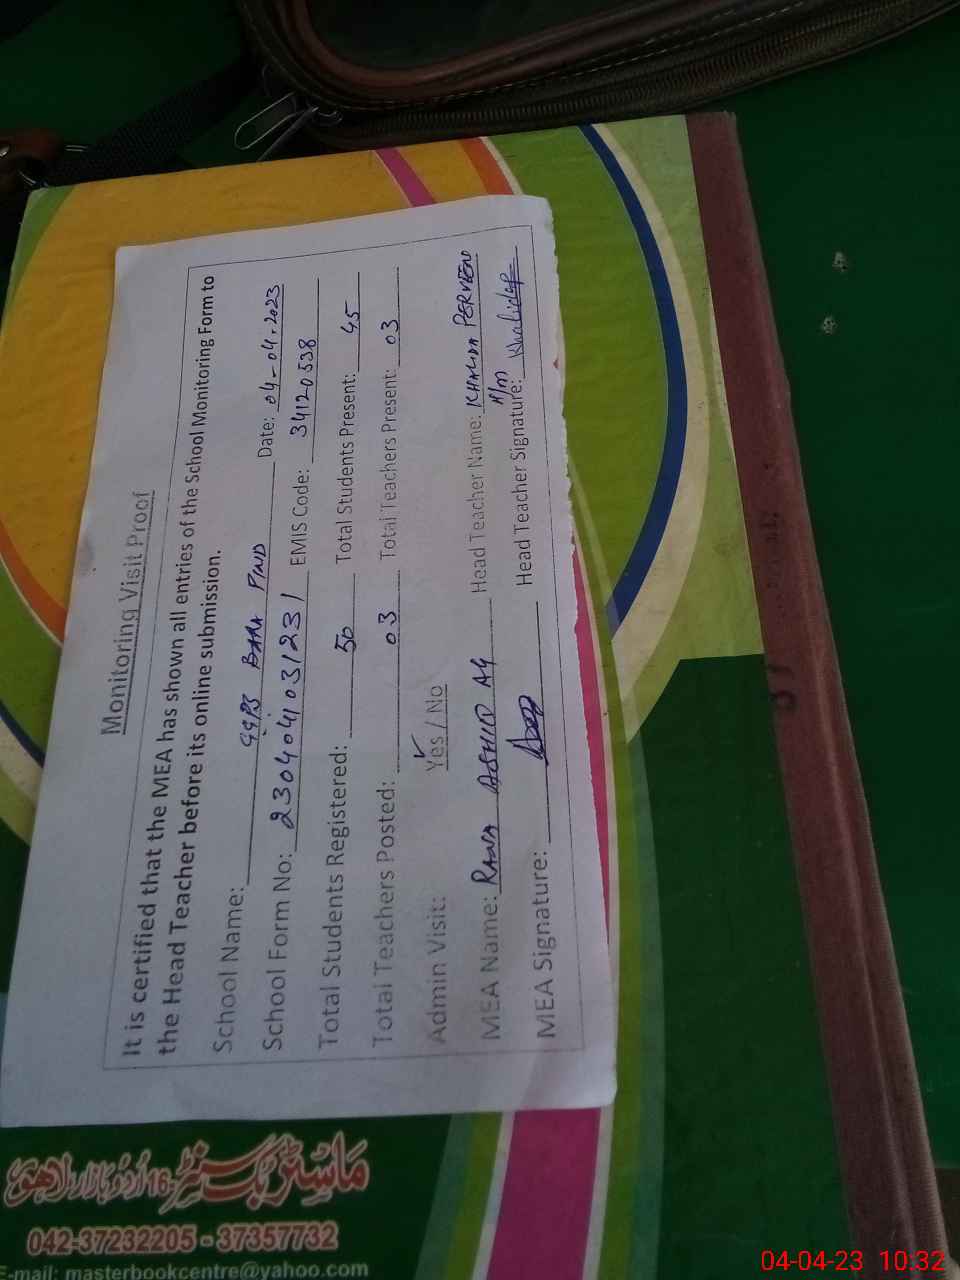 Monitoring Visit Proof
It is certified that the MEA has shown all entries of the School Monitoring Form to
the Head Teacher before its online submission.
School Name: GGPS BARA PIND Date: 04-04-2023
School Form No: 2304041031231 EMIS Code: 34120538
Total Students Registered: 50 Total Students Present: 45
Total Teachers Posted: 03 Total Teachers Present: 03
Admin Visit: Yes / No
MEA Name: RANA ASHID Ali Head Teacher Name: KHALIDA PERVEEN
MEA Signature: Head Teacher Signature: Khalida P
ماسٹر بک سنٹر 16-اُردُو بازار لاہور
042-37232205 - 37357732
E-mail: masterbookcentre@yahoo.com
04-04-23 10:32